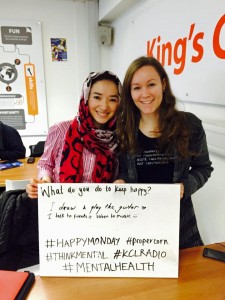 FUN
King's C
What do you do to keep happy?
I draw & play the guitar
I talk to friends & listen to music
#HAPPYMONDAY #propercorn
#THINKMENTAL #KCLRADIO
#MENTALHEALTH